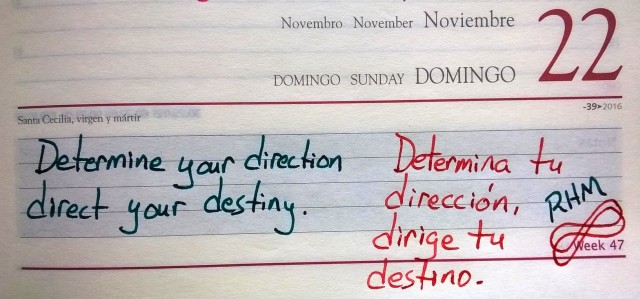 Novembro November Noviembre
22
DOMINGO SUNDAY DOMINGO
-39➤2016
Santa Cecilia, virgen y mártir
Determine your direction
direct your destiny.
Determina tu
dirección,
dirige tu
destino.
RHM
Week 47